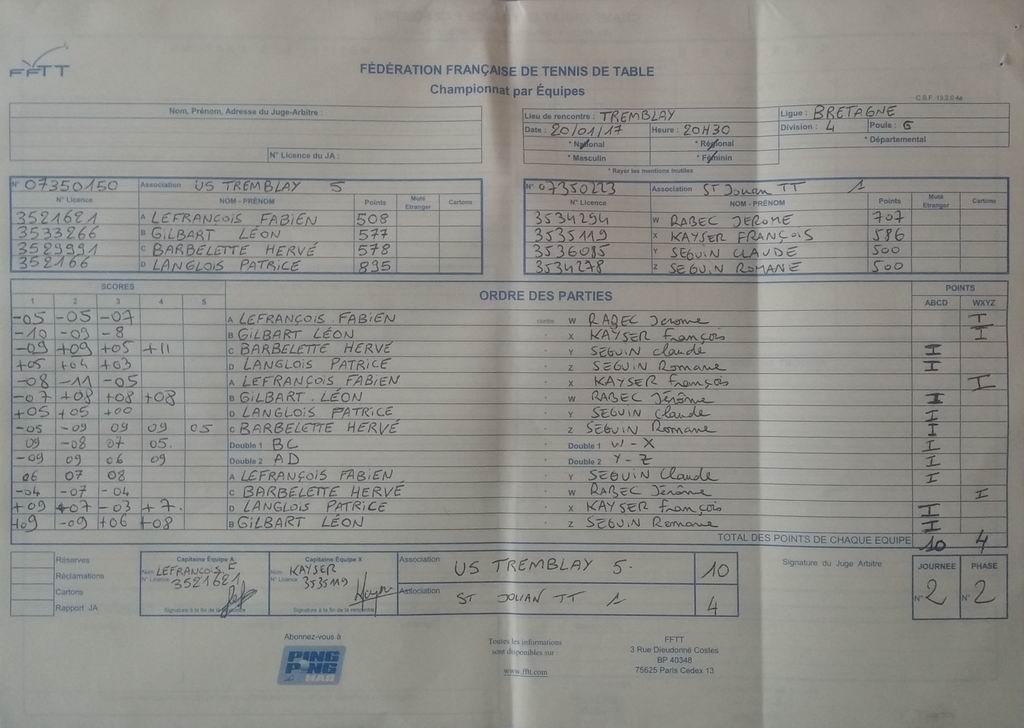 FFTT
FÉDÉRATION FRANÇAISE DE TENNIS DE TABLE
Championnat par Équipes
C.S.F. 13.2.5-4a
Nom, Prénom, Adresse du Juge-Arbitre :
N° Licence du JA :
Lieu de rencontre : TREMBLAY
Ligue : BRETAGNE
Date : 20/01/17 Heure : 20H30
Division : 4 Poule : G
* National * Régional * Départemental
* Masculin * Féminin
* Rayer les mentions inutiles
N° 07350150 Association US TREMBLAY 5
N° Licence NOM - PRÉNOM Points Muté Etranger Cartons
3521681 A LEFRANÇOIS FABIEN 508
3533266 B GILBART LÉON 577
3529991 C BARBELETTE HERVÉ 578
352166 D LANGLOIS PATRICE 895
N° 07350223 Association ST Jouan TT 1
N° Licence NOM - PRÉNOM Points Muté Etranger Cartons
3534294 W RABEC JEROME 707
3535119 X KAYSER FRANÇOIS 586
3536085 Y SEGUIN CLAUDE 500
3534278 Z SEGUIN ROMANE 500
SCORES ORDRE DES PARTIES POINTS
1 2 3 4 5 ABCD WXYZ
-05 -05 -07 A LEFRANÇOIS FABIEN contre W RABEC Jerome I
-10 -09 -8 B GILBART LÉON - X KAYSER François I
-09 +09 +05 +11 C BARBELETTE HERVÉ - Y SEGUIN claude I
+05 +04 +03 D LANGLOIS PATRICE - Z SEGUIN Romane I
-08 -11 -05 A LEFRANÇOIS FABIEN - X KAYSER François I
-07 +08 +08 +08 B GILBART LÉON - W RABEC Jérôme I
+05 +05 +00 D LANGLOIS PATRICE - Y SEGUIN Claude I
-05 -09 09 09 05 C BARBELETTE HERVÉ - Z SEGUIN Romane I
09 -08 07 05 Double 1 BC - Double 1 W - X I
-09 09 06 09 Double 2 AD - Double 2 Y - Z I
06 07 08 A LEFRANÇOIS FABIEN - Y SEGUIN Claude I
-04 -07 -04 C BARBELETTE HERVÉ - W RABEC Jérôme I
+09 +07 -03 +7 D LANGLOIS PATRICE - X KAYSER François I
+09 -09 +06 +08 B GILBART LÉON - Z SEGUIN Romane I
TOTAL DES POINTS DE CHAQUE EQUIPE 10 4
Réserves
Réclamations
Cartons
Rapport JA
Capitaine Équipe A
Nom LEFRANCOIS F
N° Licence 3521681
Signature à la fin de la rencontre
Capitaine Équipe X
Nom KAYSER
N° Licence 3535119
Signature à la fin de la rencontre
Association US TREMBLAY 5. 10
Association ST JOUAN TT 1 4
Signature du Juge Arbitre
JOURNEE PHASE
N° 2 N° 2
Abonnez-vous à
PING PONG MAG
Toutes les informations
sont disponibles sur :
www.fftt.com
FFTT
3 Rue Dieudonné Costes
BP 40348
75625 Paris Cedex 13